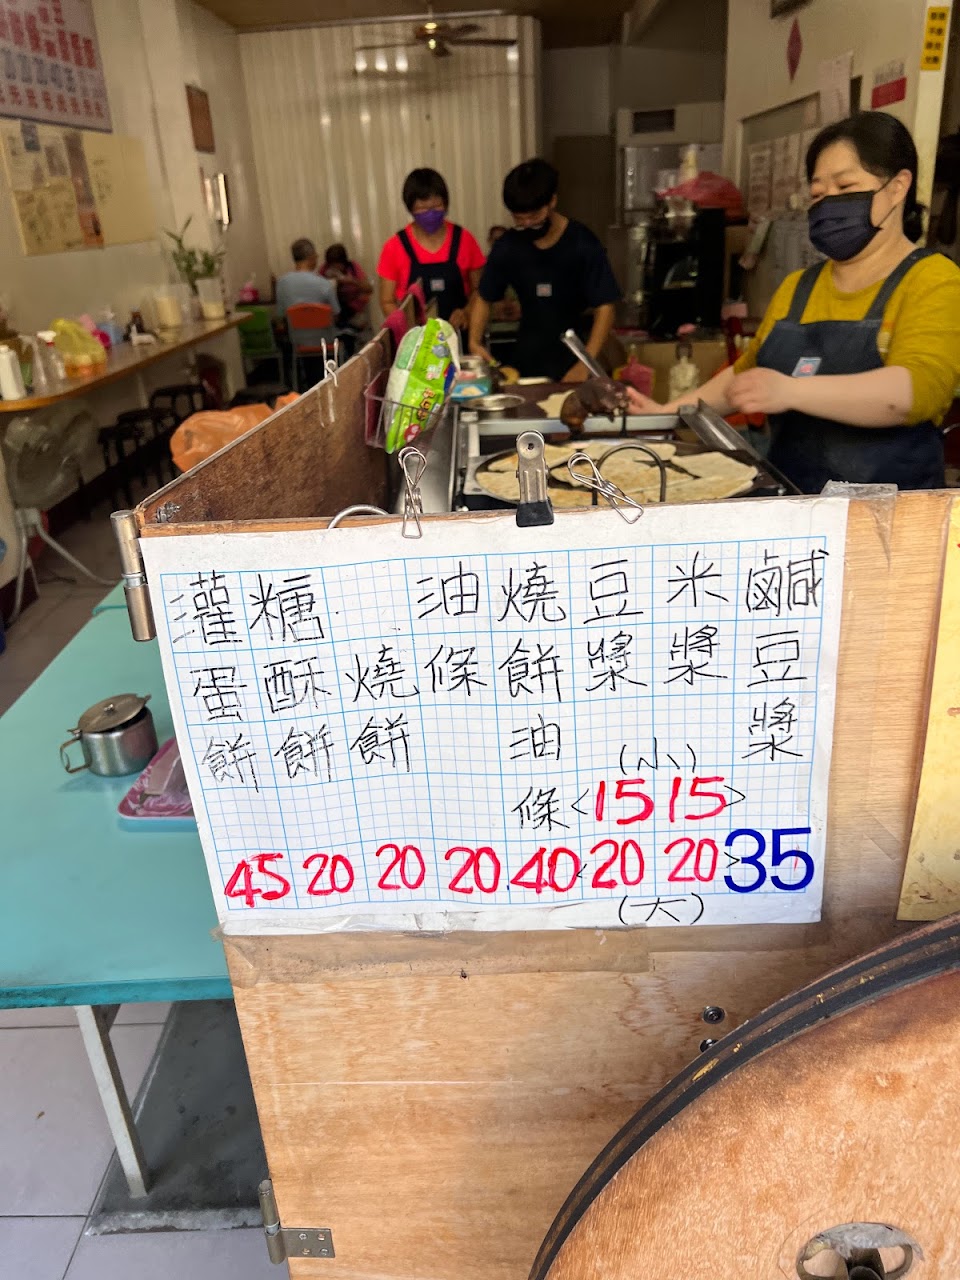 鹹豆漿 35
米漿 (小) 15 (大) 20
豆漿 (小) 15 (大) 20
燒餅油條 40
油條 20
燒餅 20
糖酥餅 20
灌蛋餅 45